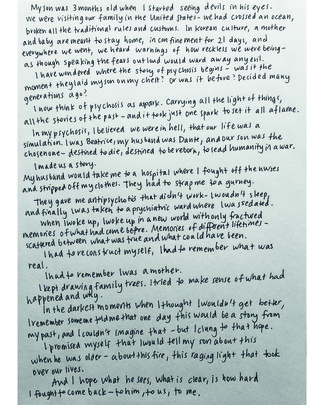 My son was 3 months old when I started seeing devils in his eyes.
We were visiting our family in the United States - we had crossed an ocean,
broken all the traditional rules and customs. In Korean culture, a mother
and baby are meant to stay home, in confinement for 21 days, and
everywhere we went, we heard warnings of how reckless we were being -
as though speaking the fears out loud would ward away any evil.
I have wondered where the story of psychosis begins - was it the
moment they laid my son on my chest? Or was it before? Decided many
generations ago?
I now think of psychosis as a spark. Carrying all the light of things,
all the stories of the past - and it took just one spark to set it all aflame.
In my psychosis, I believed we were in hell, that our life was a
simulation. I was Beatrice, my husband was Dante, and our son was the
chosen one - destined to die, destined to be reborn, to lead humanity in a war.
I made us a story.
My husband would take me to a hospital where I fought off the nurses
and stripped off my clothes. They had to strap me to a gurney.
They gave me antipsychotics that didn't work - I wouldn't sleep,
and finally I was taken to a psychiatric ward where I was sedated.
When I woke up, I woke up in a new world with only fractured
memories of what had come before. Memories of different lifetimes -
scattered between what was true and what could have been.
I had to reconstruct myself, I had to remember what was
real.
I had to remember I was a mother.
I kept drawing family trees. I tried to make sense of what had
happened and why.
In the darkest moments when I thought I wouldn't get better,
I remember someone told me that one day this would be a story from
my past, and I couldn't imagine that - but I clung to that hope.
I promised myself that I would tell my son about this
when he was older - about this fire, this raging light that took
over our lives.
And I hope what he sees, what is clear, is how hard
I fought to come back - to him, to us, to me.